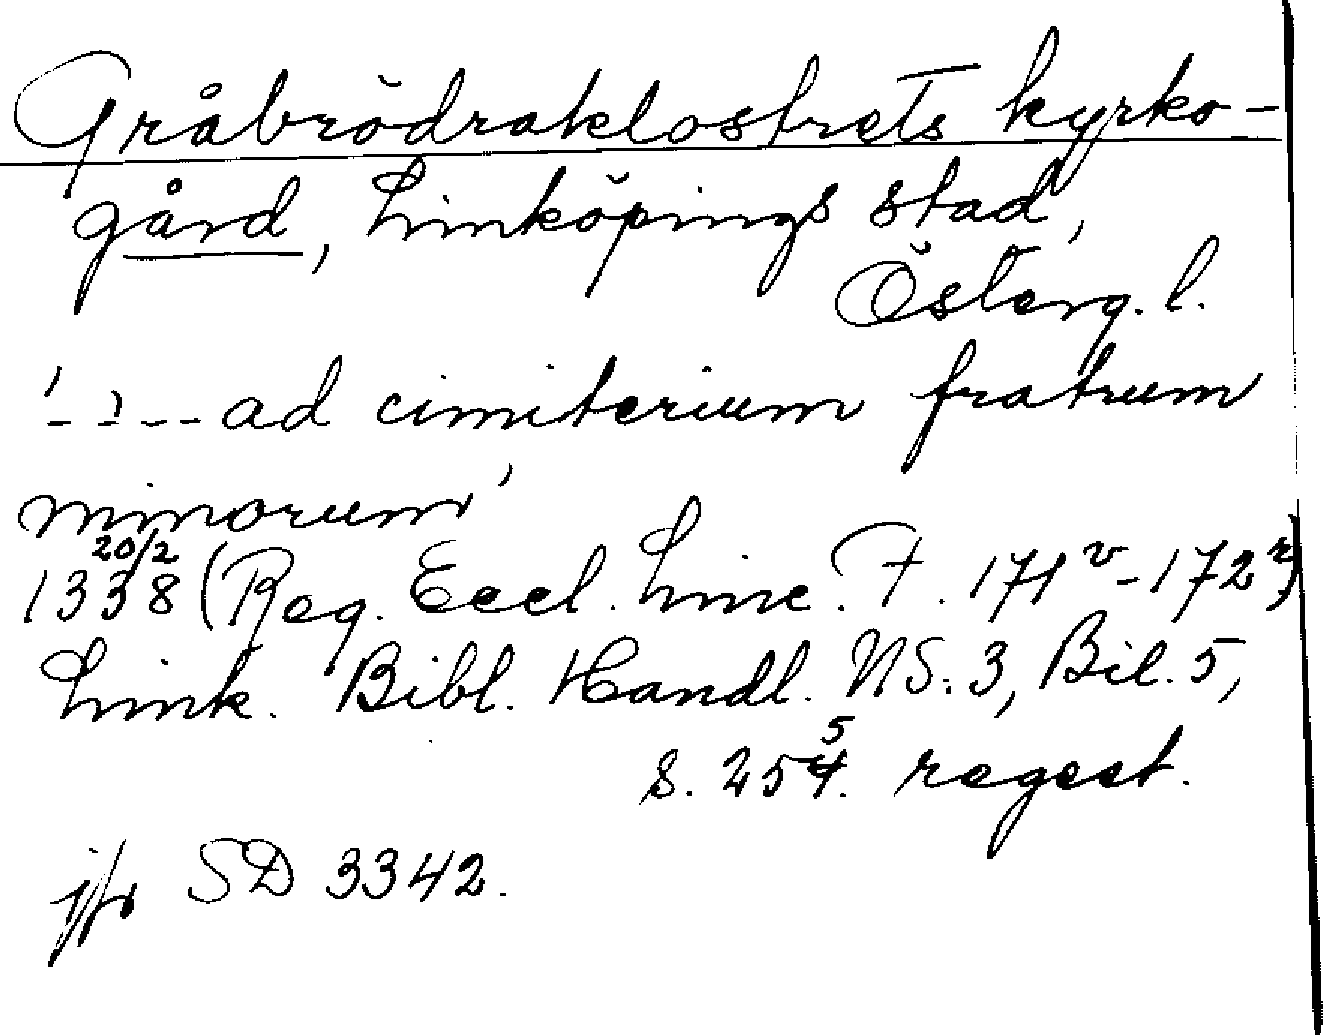 Gråbrödraklostrets kyrko-
gård, Linköpings stad,
Österg. l.
'- - - - ad cimiterium fratrum
minorum'
1338 20/2 (Reg. Eccl. Linc. F. 171v-172r)
Link. Bibl. Handl. NS. 3, Bil. 5,
s. 255. regest.
jfr SD 3342.